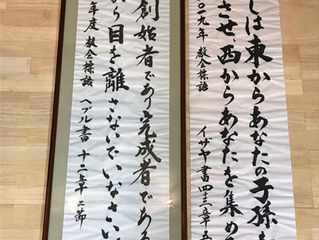 しは東からあなたの子孫を
させ、西からあなたを集め
〇一九年 教会標語 イザヤ書四三章五
創始者であり完成者である
から目を離さないでいなさい
年度 教会標語 ヘブル書 十二章二節